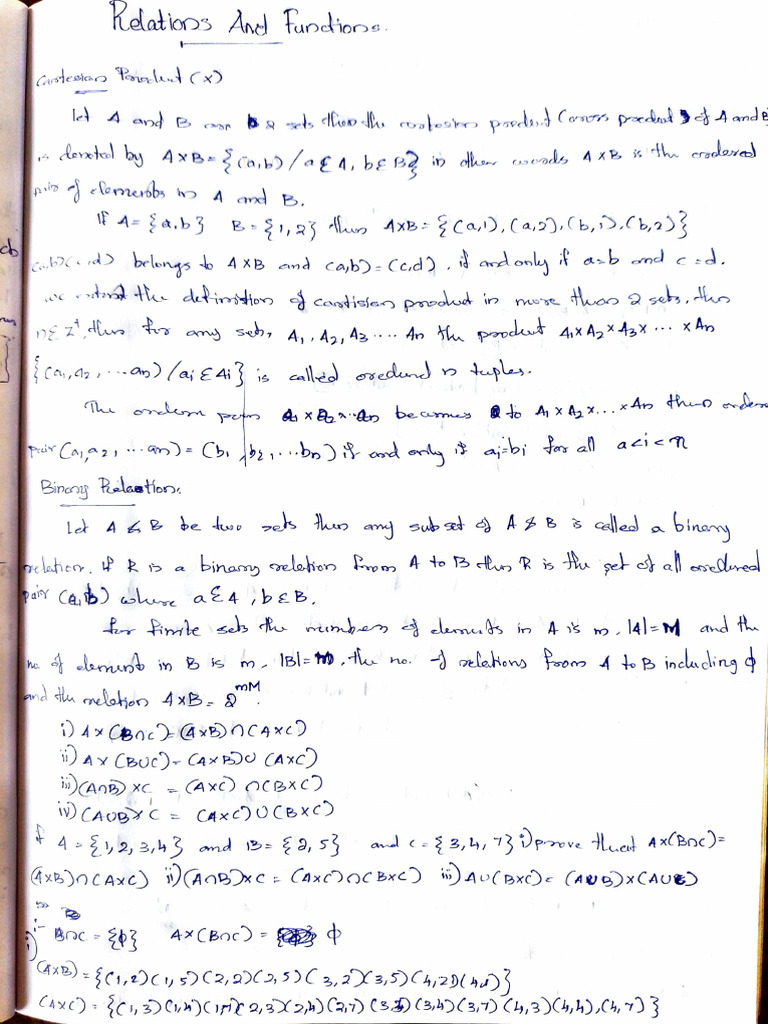 Relations And Functions.
Cartesian Product (x)
let A and B are 2 sets then the cartesian product (cross product) of A and B
is denoted by A×B = {(a,b) / a ε A, b ε B} in other words A×B is the ordered
pair of elements in A and B.
If A = {a,b} B = {1,2} then A×B = {(a,1), (a,2), (b,1), (b,2)}
(a,b)(c,d) belongs to A×B and (a,b) = (c,d), if and only if a=b and c=d.
we extend the definition of cartisian product in more than 2 sets, then
n ε Z⁺, then for any sets, A₁, A₂, A₃ .... An the product A₁×A₂×A₃× ... ×An
{(a₁,a₂, ... an) / ai ε Ai} is called ordered n tuples.
The ordern pair a₁×a₂×...an becomes to A₁×A₂×...×An then ordere
pair (a₁,a₂, ... an) = (b₁, b₂, ... bn) if and only if ai=bi for all a<i<n
Binary Relation.
Let A & B be two sets then any subset of A & B is called a binary
relation. If R is a binary relation from A to B then R is the set of all ordered
pair (a,b) where a ε A, b ε B.
for finite sets the numbers of elements in A is m, |A|=M and the
no. of element in B is m, |B|=m, the no. of relations from A to B including ϕ
and the relation A×B = 2^mM.
i) A×(B∩C) = (A×B)∩(A×C)
ii) A×(B∪C) - (A×B)∪(A×C)
iii) (A∩B)×C = (A×C)∩(B×C)
iv) (A∪B)×C = (A×C)∪(B×C)
If A = {1,2,3,4} and B = {2,5} and C = {3,4,7} i) prove that A×(B∩C)=
(A×B)∩(A×C) ii) (A∩B)×C = (A×C)∩(B×C) iii) A∪(B×C) = (A∪B)×(A∪C)
i) B∩C = {ϕ} A×(B∩C) = ϕ
(A×B) = {(1,2)(1,5)(2,2)(2,5)(3,2)(3,5)(4,2)(4,5)}
(A×C) = {(1,3)(1,4)(1,7)(2,3)(2,4)(2,7)(3,3)(3,4)(3,7)(4,3)(4,4),(4,7)}